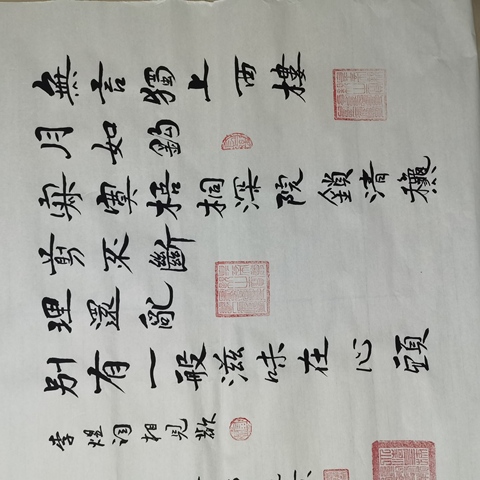 無言獨上西樓
月如鈎
寂寞梧桐深院鎖清龝
剪不斷
理還亂
別有一般滋味在心頭
李煜詞相見歡